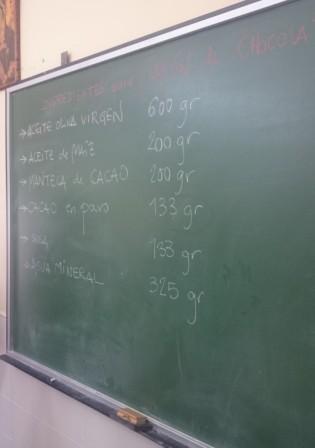 INGREDIENTES PARA JABÓN de CHOCOLA
→ ACEITE OLIVA VIRGEN 600 gr
→ ACEITE de MAÍZ 200 gr
→ MANTECA de CACAO 200 gr
→ CACAO en polvo 133 gr
→ SOSA 133 gr
→ AGUA MINERAL 325 gr